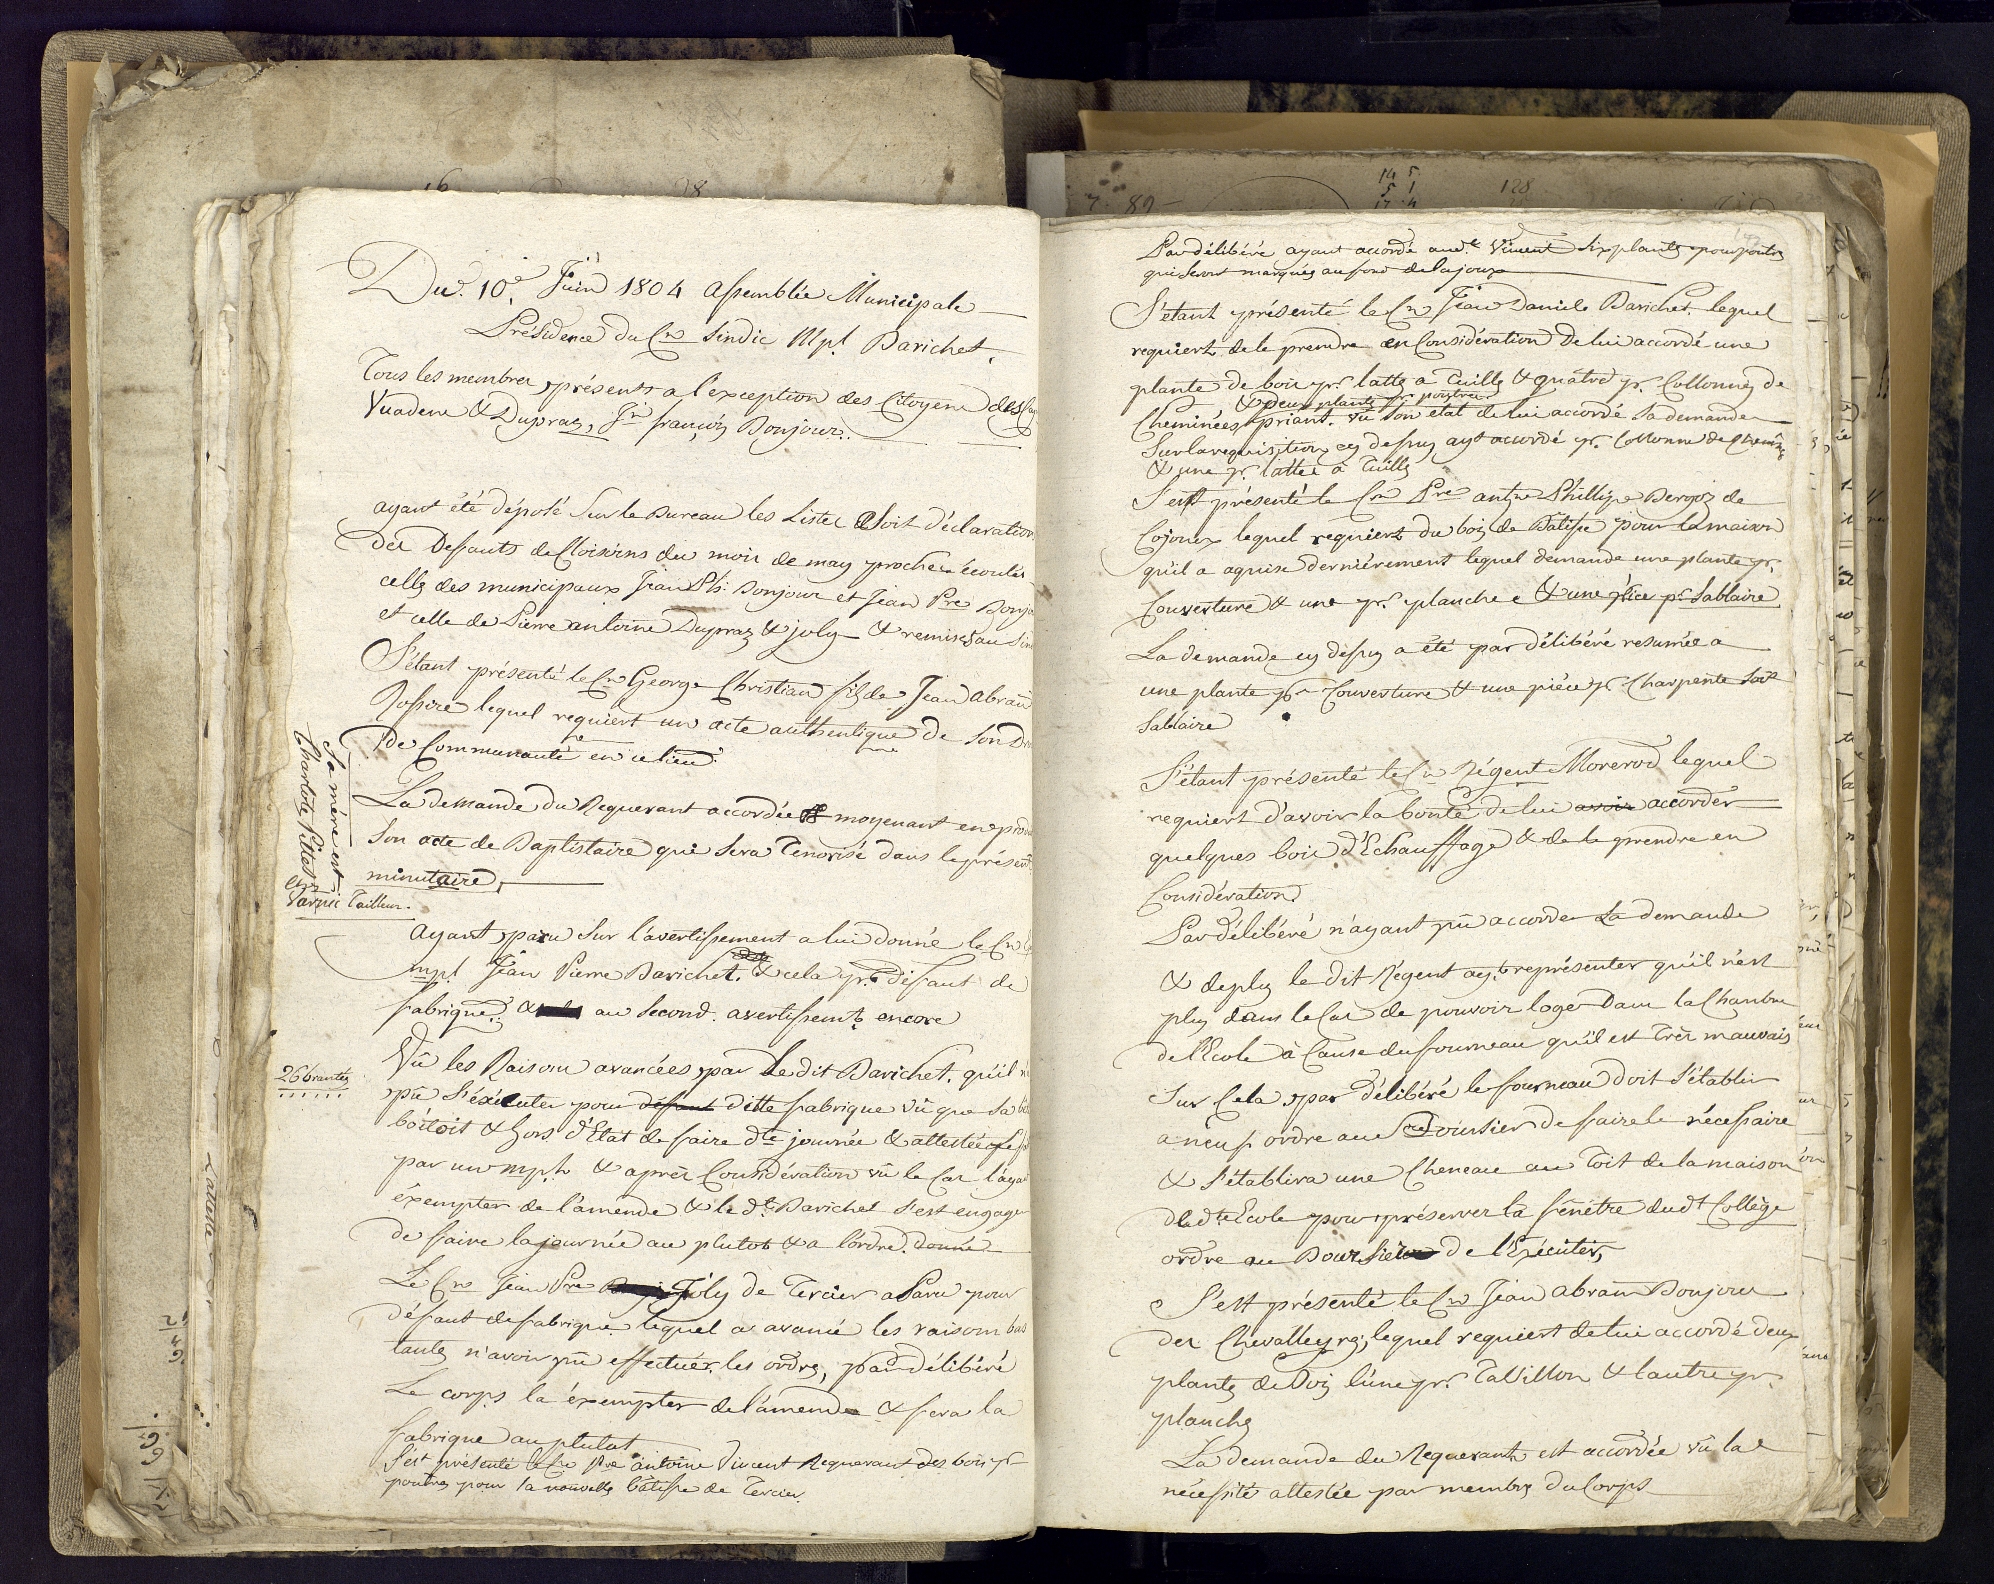 Du. 10.e Juin 1804 assemblée Municipale
Présidence du Cn Sindic Mpl. Barichet.
Tous les membres présents a l'exception des Citoyens des
Vuadene & Dupraz, Jn françois Bonjour.
ayant été déposé Sur le Bureau les Listes Soit déclaration
des Defauts de Cloisons du mois de may proche écoulés
celles des municipaux Jean Ph: Bonjour et Jean Pre Bonjo
et celle de Pierre antoine Dupraz & joly & remises au Sin
S'étant présenté le Cn George Christian fils de Jean abram
Rossire lequel requiert un acte authentique de Son Dr
De Communauté en ce lieu.
La demande du Requerant accordée moyenant en produ
Son acte de Baptistaire qui Sera Tenorisé dans le présent
minutaire,
Sa mère est
Charlote Pittet
en
Varnie Tailleur.
ayant paru Sur l'avertissement a lui donné le Cn
mpl Jean Pierre Barichet. & cela pr. défaut de
fabrique. & au Second. avertissemt. encore
26 brantes
Vû les Raisons avancées par Le dit Barichet, qu'il n
pû S'éxécuter pour défaut ditte fabrique vû que Sa
bôitoit & hors d'Etat de faire dte journée & attestée
par un mpl. & après Considération vû le Cas l'aya
éxempter de l'amende & le dt. Barichet S'est engage
de faire la journée au plutot & a l'ordre. donné
Le Cn Jean Pre Joly de Tercier a Paru pour
défaut de fabrique lequel a avancé les raisons bas
tantes n'avoir pû effectuér les ordres, par délibéré
Le corps la éxempter de l'amende & fera la
fabrique au plutot
S'est présenté le Cn Pre antoine Vincent Requerant des bois pr
poutres pour la nouvelle bâtisse de Tercier.
Par délibéré ayant accordé au dt. Vincent Six plantes pour poutres
qui Seront marquées au fond de la joux
S'étant présenté le Cn Jean Daniele Barichet. lequel
requiert de le prendre en Considération De lui accordé une
plante de bois pr. lattes a Tuille & quatre pr. Collonnes de
& deux plantes pr. poutres
Cheminées, priant. vû Son etat de lui accordé Sa demande
Sur la requisition cy dessus ayt accordé pr. Collonne de Cheminée
& une pr. lattes à Tuille
S'est présenté le Cn Pre antne Phillipe Bergoz de
Cojoux lequel requiert du bois de Batisse pour la maison
qu'il a aquise dernièrement lequel demande une plante pr.
Couverture & une pr. planche & une pièce pr Sablaire
La demande cy dessus a été par délibéré resumée a
une plante pr Couverture & une pièce pr Charpente Soit
Sablaire
S'étant présenté le Cn Régent Morerod lequel
requiert d'avoir la bonté de lui avoir accorder
quelques bois d'Echauffage & de le prendre en
Considération.
Par délibéré n'ayant pû accorder La demande
& de plus le dit Régent ayt représenter qu'il n'est
plus dans le Cas de pouvoir loger Dans la Chambre
de l'Ecole à Cause du fourneau qu'il est Très mauvais
Sur Cela par délibéré le fourneau doit S'établir
a neuf ordre au Boursier de faire le nécessaire
& S'établira une Cheneau au Toit de la maison
de la dte Ecole pour préserver la fenêtre du dt Collège
ordre au Boursier de l'Exécuter,
S'est présenté le Cn Jean abram Bonjour
des Chevalleyres, lequel requiert de lui accordé deux
plantes de Bois l'une pr. Tavillon & l'autre pr.
planches
La demande du Requerant est accordée vû la
nécessité attestée par membres du Corps